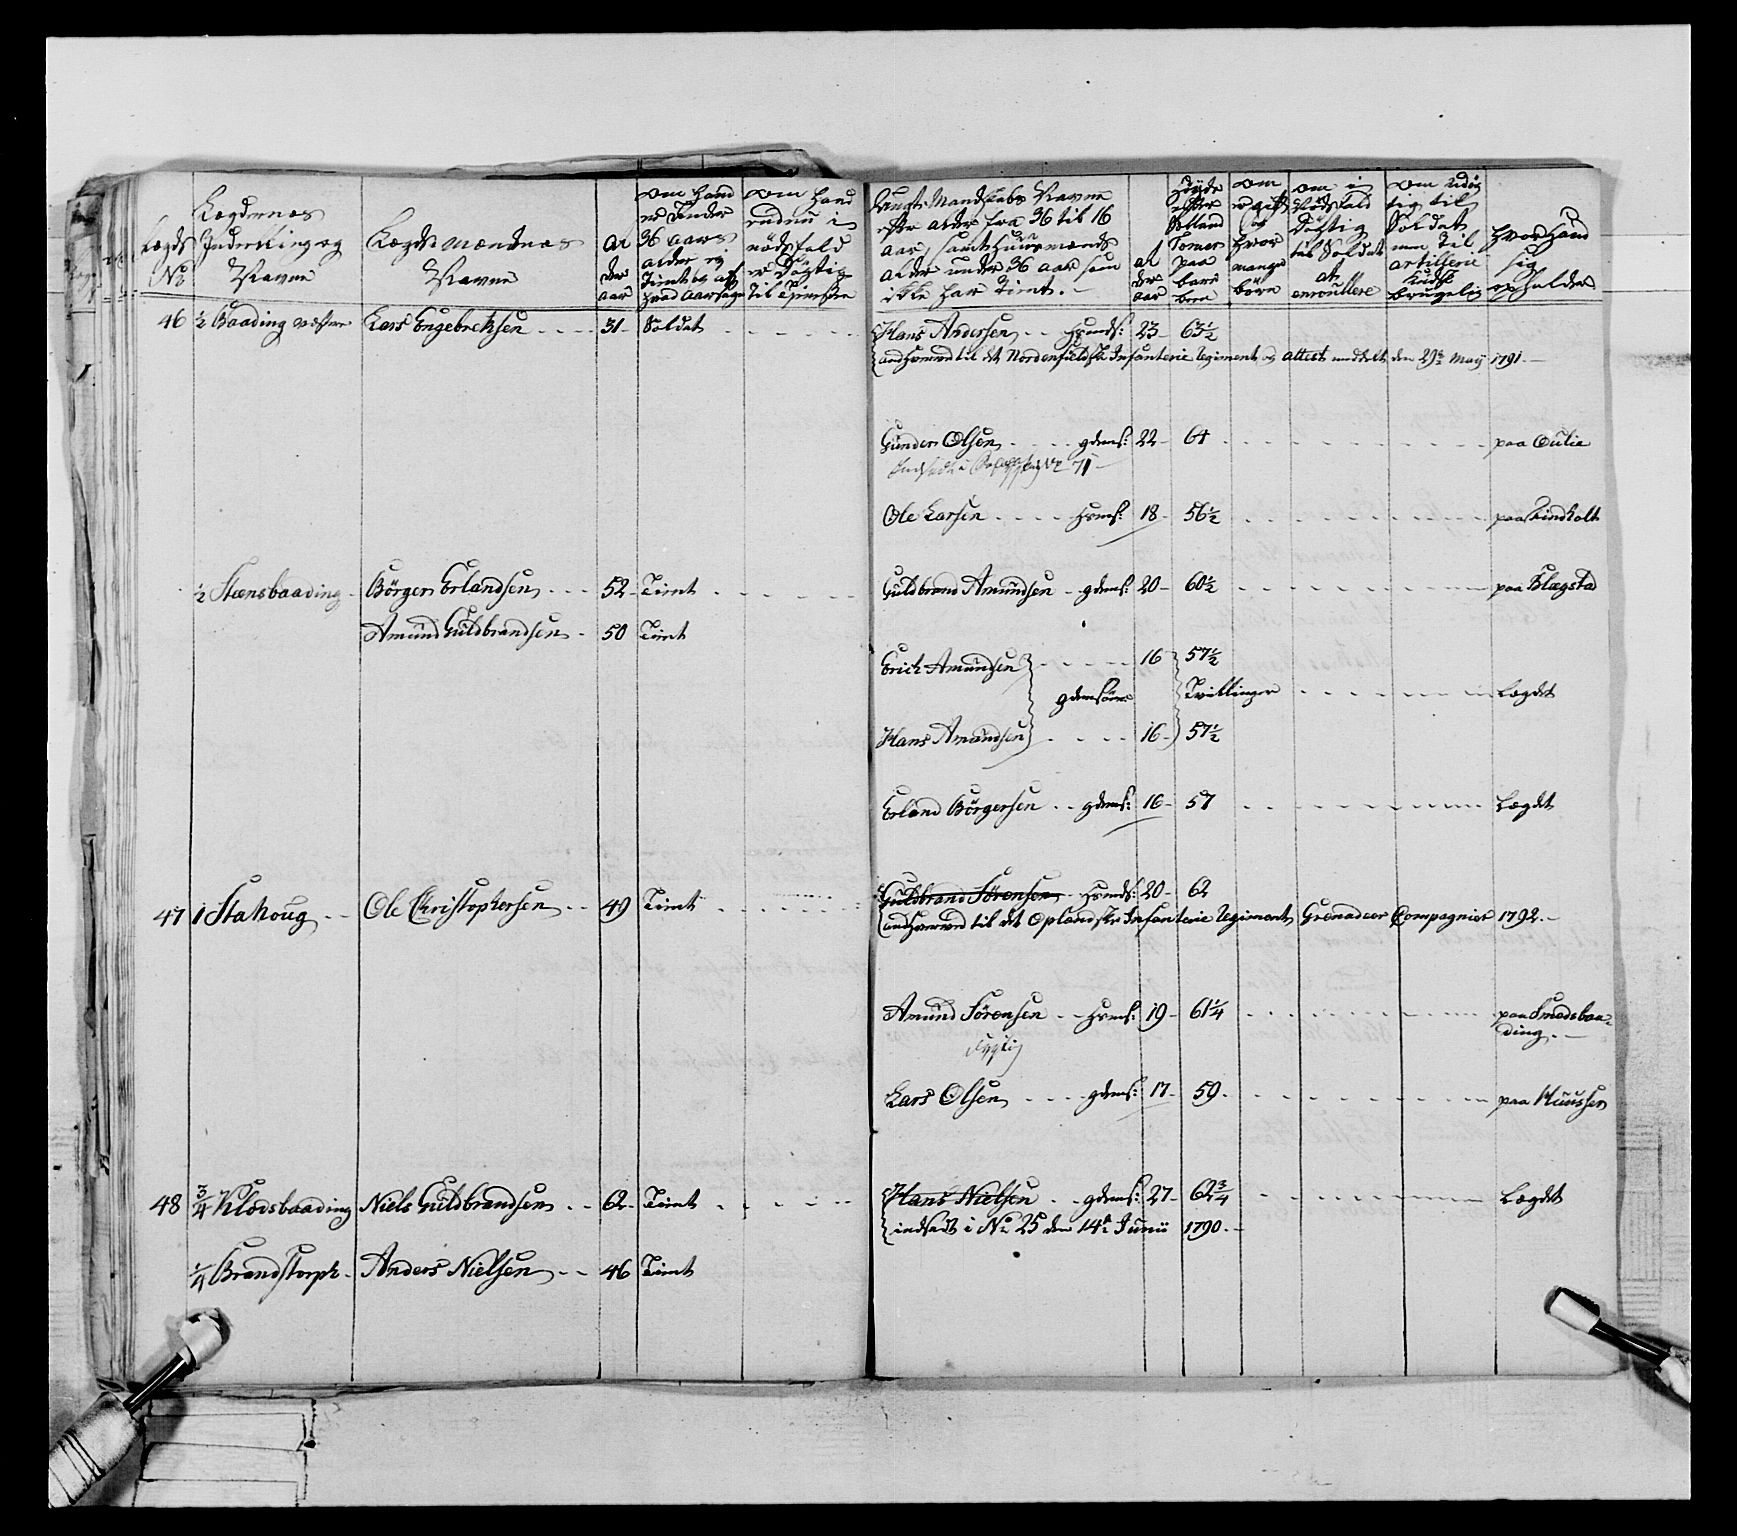 Lægds No
Lægdernes Inddeeling og Navne
Lægds Mændnes Navne
Alder aar
om hand er under 36 aars alder og tient og af hvad aarsage
om hand endnu i nödsfald er dögtig til Tieneste
Ungt Mandskabs Navne efter alder fra 36 til 16 aar, samt huusmænds alder under 36 aar som ikke har tient.
alder aar
Höyde efter Sælland Tommer paa bare been
om gift og hvor mange börn
om i Nödsfald Dögtig til Soldat at enroullere
om udög tig til Soldat men til artillerie Kudsk brugelig
hvor hand sig opholder
46 ½ Baading vestre Lars Engebretsen 31 Soldat
Hans Andersen hmds: 23 63½
andhvervet til det Nordenfieldske Infanterie Regiment og attest meddelt den 29de May 1791.
Gunder Olsen gdms: 22 64 paa Oulie
Indsadt i No 71
Ole Larsen hsms: 18 56½ paa Lindholt
½ Steensbaading Börger Erlandsen 52 Tient
Guldbrand Amundsen gdms: 20 60½ paa Blegstad
Amund Guldbrandsen 50 Tient
Erich Amundsen 16 57½
gdmsöner Tvillinger Lægdet
Hans Amundsen 16 57½
Erland Börgersen gdms: 16 57 Lægdet
47 1 Stahoug Ole Christophersen 49 Tient
Guldbrand Sörensen hsmds: 20 62
andhvervet til det Oplandske Infanterie Regiments Grenadeer Compagnier 1792.
Amund Sörensen hsms: 19 61¼ paa Smedsbaa-
ding.
Lars Olsen gdms: 17 59 paa Huusser
48 ¾ Klodsbaading Niels Guldbrandsen 62 Tient
Hans Nielsen gdms: 27 62¾ Lægdet
indsadt i No 25 den 14de Junii 1790.
¼ Brandstorph Anders Nielsen 46 Tient